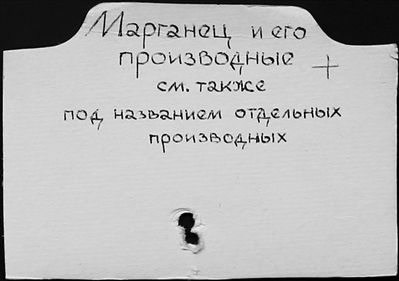 Марганец и его
производные +
см. также
под названием отдельных
производных